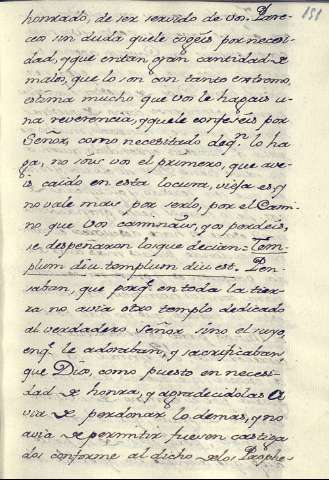 151
honrado, de ser servido de vos. Pare-
ceo sin duda que le cogeis por necesi-
dad, y que entan gran cantidad de
malos, que lo son con tanto extremo,
estima mucho que vos le hagais u-
na reverencia, y que le confeseis por
Señor, como necesitado de qn. lo ha
ga, no sois vos el primero, que ave-
is caido en esta locura, vieja es, y
no vale mas por serlo, por el Cami-
no que vos caminais, y os perdeis,
se despeñaron los que decian = Tem-
plum diu. templum diu est. Pen-
saban, que porq. en toda la tier-
ra no avia otro templo dedicado
al verdadero Señor sino el suyo,
enq. le adoraban, y sacrificaban,
que Dios, como puesto en necesi-
dad de honra, y agradecidolas a
via de perdonar lo demas, y no
avia de permitir fuesen castiga
dos conforme al dicho de los Prophe-